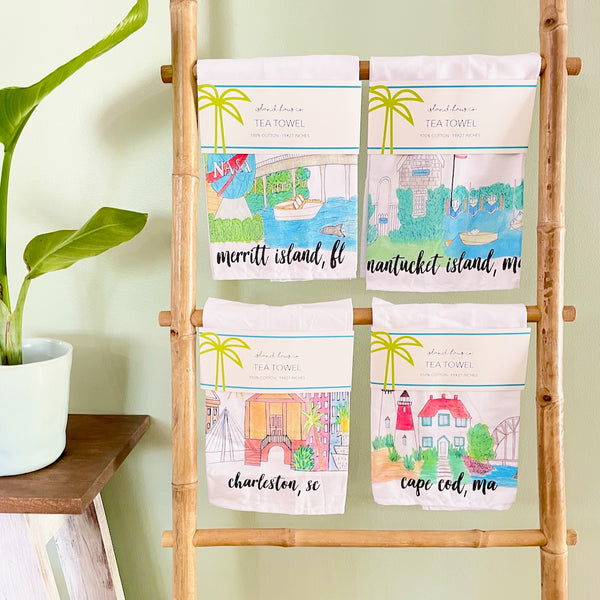 island haus co.
TEA TOWEL
100% COTTON · 19X27 INCHES
NASA
merritt island, fl
island haus co.
TEA TOWEL
100% COTTON · 19X27 INCHES
nantucket island, ma
island haus co.
TEA TOWEL
100% COTTON · 19X27 INCHES
charleston, sc
island haus co.
TEA TOWEL
100% COTTON · 19X27 INCHES
cape cod, ma